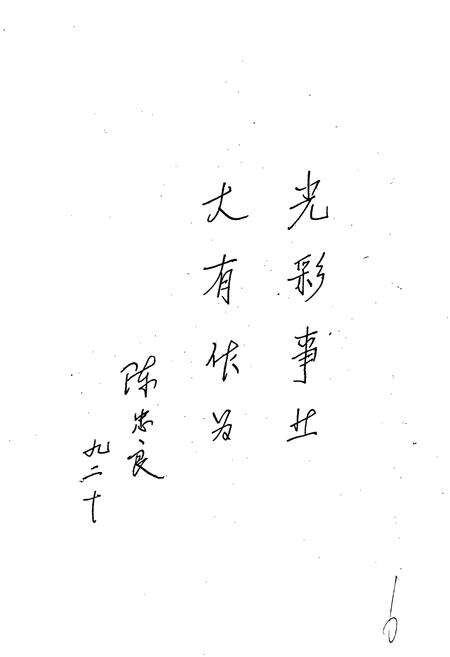 光彩事业
大有作为
陈忠良
九二十